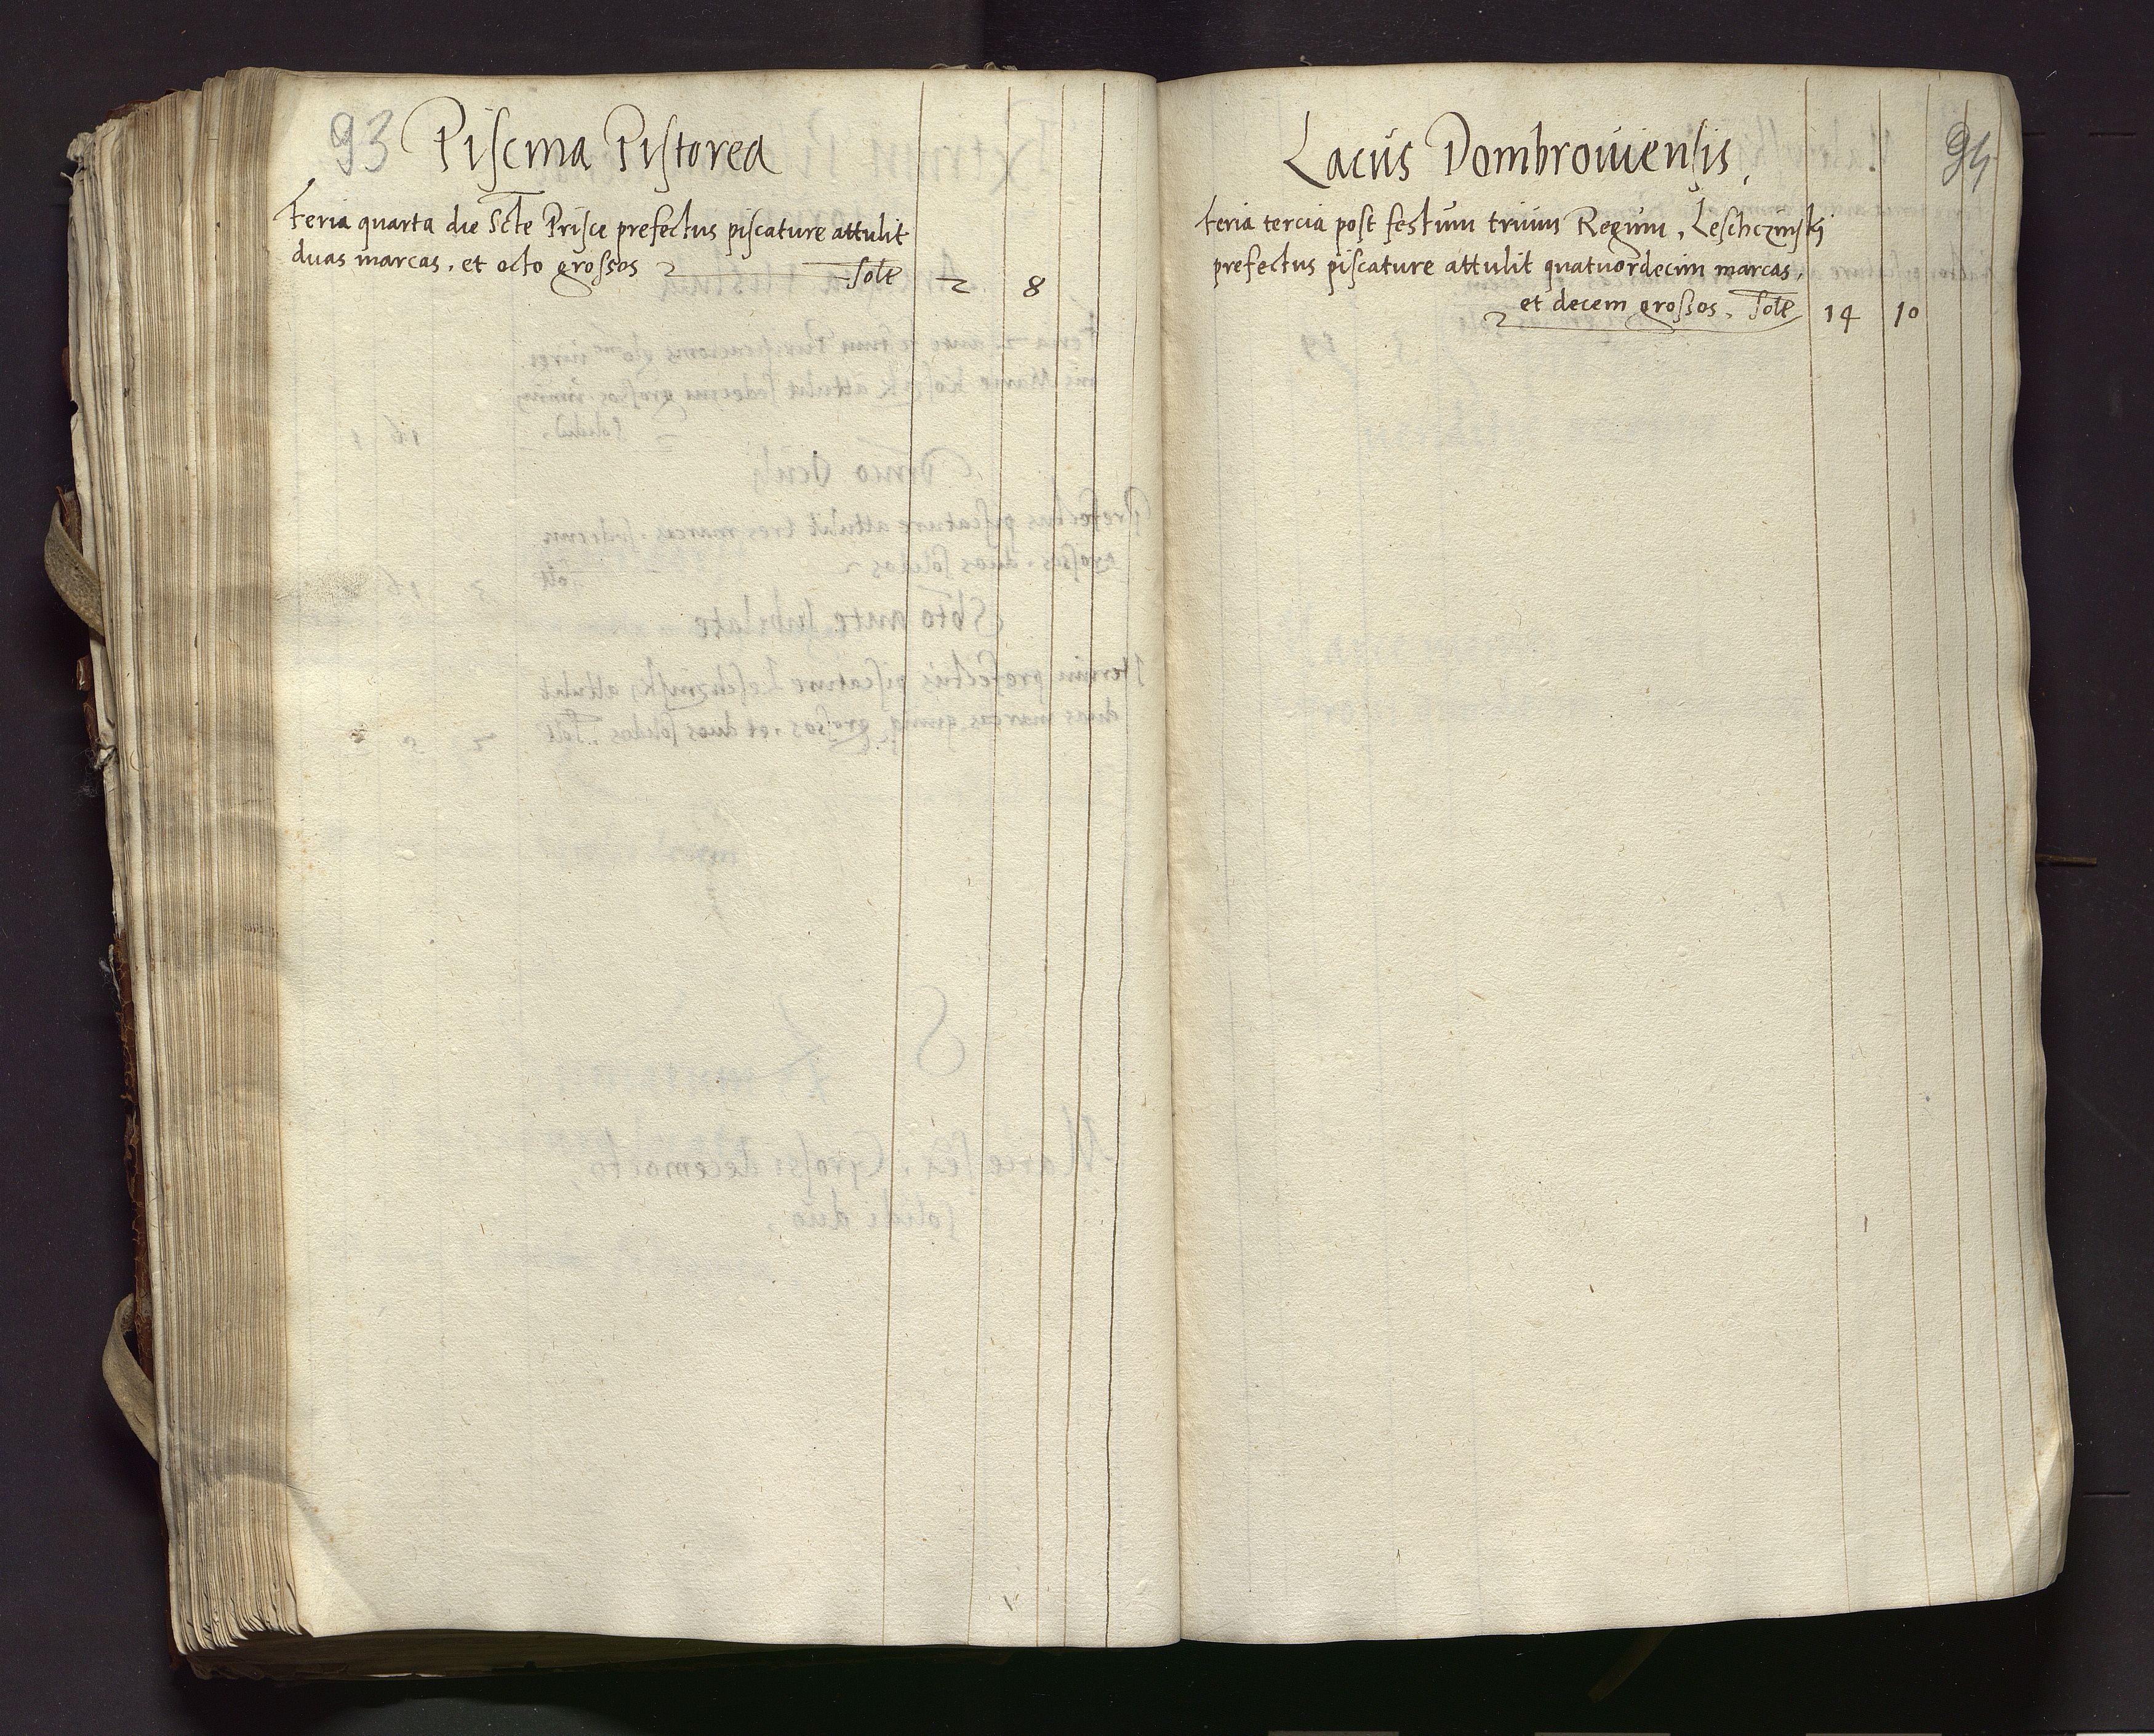 93 Piscina Pistorea
Feria quarta die Scte Prisce prefectus piscature attulit
duas marcas, et octo grossos solt 2 8
94
Lacus Dombroviensis,
Feria tercia post festum trium Regum, Leschczinski
prefectus piscature attulit quatuordecim marcas,
et decem grossos, solt 14 10